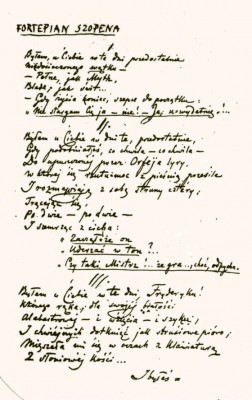 FORTEPIAN SZOPENA
I.
Byłem u Ciebie w te dni przedostatnie
Niedocieczonego wątku —
— Pełne, jak Myth,
Blade, jak świt...
— Gdy życia koniec, szepce do początku:
„Nie stargam Cię ja — nie! — Ja, uwydatnię!..."
II.
Byłem u Ciebie w dni te, przedostatnie,
Gdy podobniałeś, co chwila — co chwila —
Do upuszczonej przez Orfeja liry,
W której się rzutu-moc z pieśnią przesila
I rozmawiają z sobą struny cztery,
Trącając się,
Po dwie — po dwie —
I szemrząc z cicha:
„Zacząłże on
Uderzać w ton?...
Czy taki Mistrz!... że gra... choć, odpycha
III.
Byłem u Ciebie w te dni, Fryderyku!
Którego ręka, dla swojej białości
Alabastrowej — i wzięcia — i szyku,
I chwiejnych dotknięć jak strusiowe pióro,
Mięszała mi się w oczach z klawiaturą
Z słoniowej kości...
I byłeś =